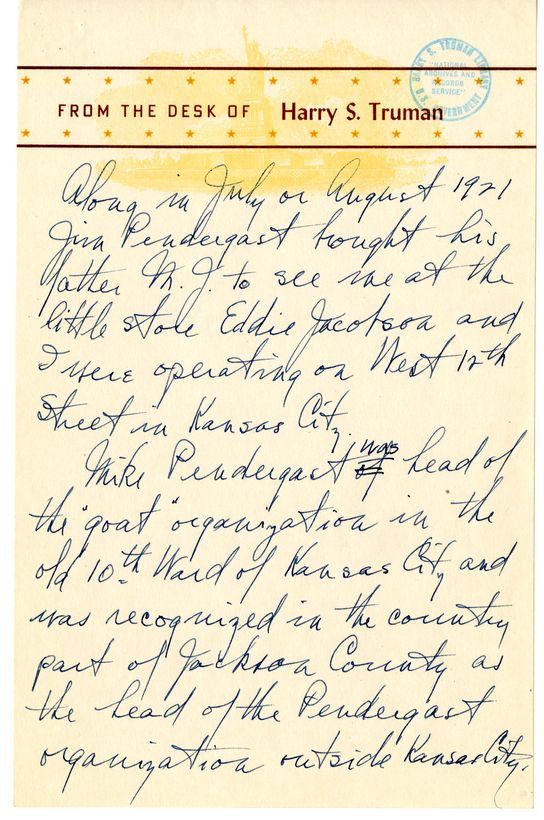 HARRY S. TRUMAN LIBRARY
"NATIONAL
ARCHIVES AND
RECORDS
SERVICE"
U.S. GOVERNMENT
FROM THE DESK OF Harry S. Truman
Along in July or August 1921
Jim Pendergast brought his
father M. J. to see me at the
little store Eddie Jacobson and
I were operating on West 12th
Street in Kansas City.
Mike Pendergast was head of
the "goat" organization in the
old 10th Ward of Kansas City and
was recognized in the country
part of Jackson County as
the head of the Pendergast
organization outside Kansas City.